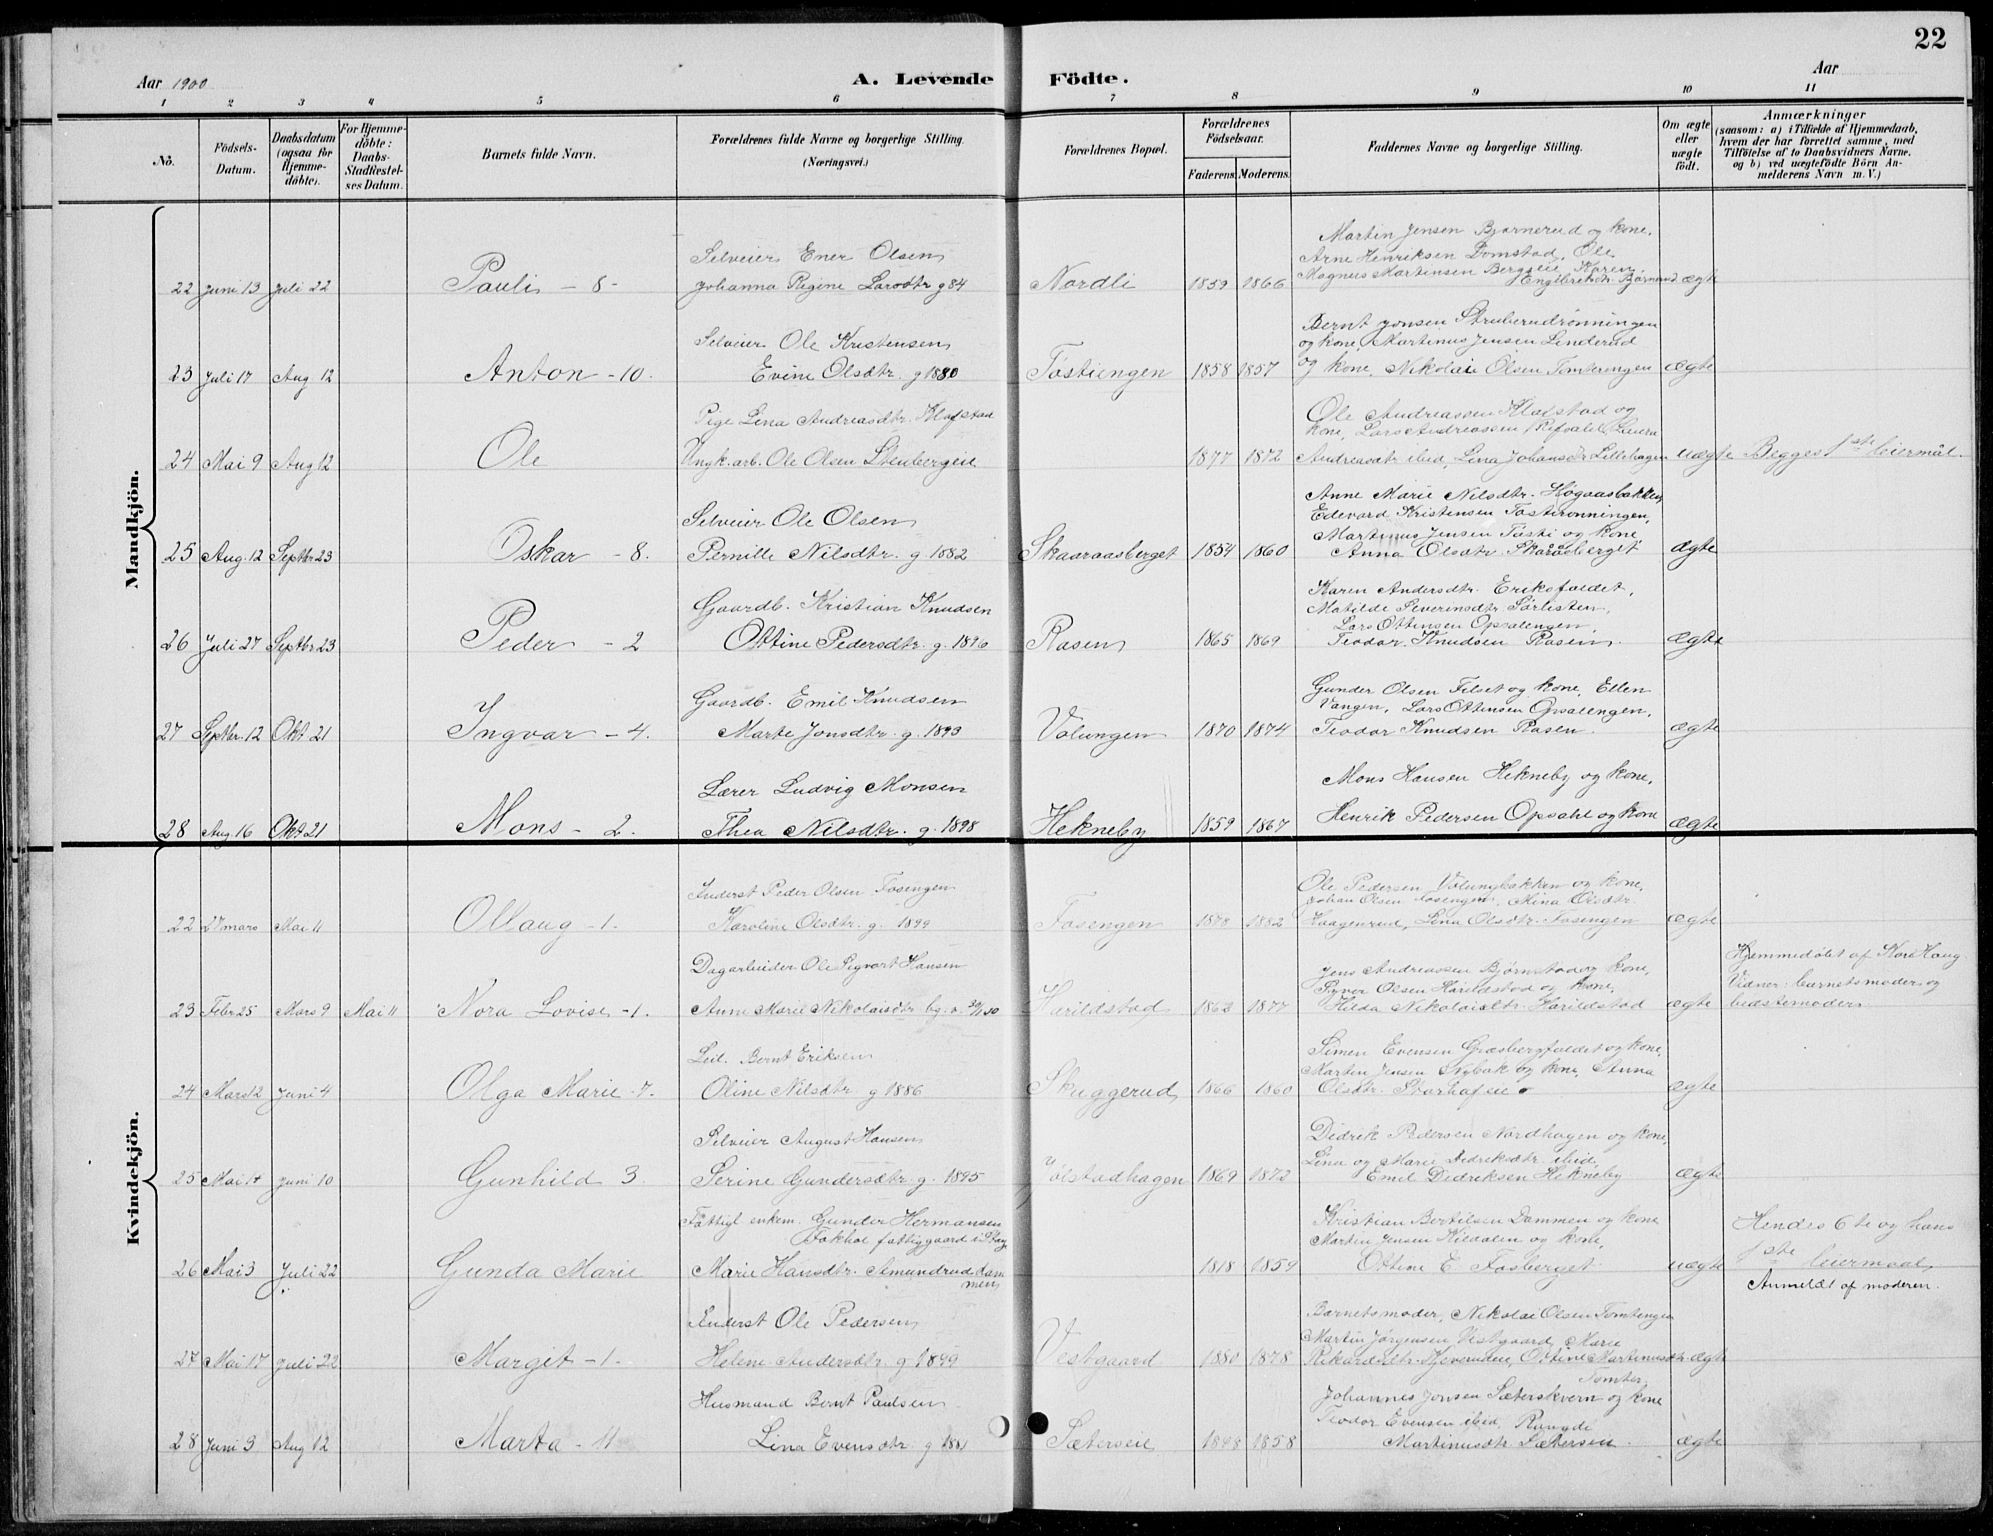 22
Aar 1900
A. Levende Födte.
Aar
1 2 3 4 5 6 7 8 9 10 11
No.
Födsels-Datum.
Daabsdatum (ogsaa for Hjemme-döbte).
For Hjemme-döbte: Daabs-Stadfæstel-ses Datum.
Barnets fulde Navn.
Forældrenes fulde Navne og borgerlige Stilling.
(Næringsvei.)
Forældrenes Bopæl.
Forældrenes Födselsaar.
Faderens. Moderens.
Faddernes Navne og borgerlige Stilling.
Om ægte eller uægte födt.
Anmærkninger
(saasom: a) i Tilfælde af Hjemmedaab,
hvem der har forrettet samme, med
Tilföielse af to Daabsvidners Navne.
og b) ved uægtefödte Börn An-
melderens Navn m. V.)
Mandkjön.
Selveier Ener Olsen
Martin Jensen Bjørnerud og kone,
Arne Henriksen Domstad, Ole
Magnus Martinsen Bergseie, Karen
22 Juni 13 Juli 22 Pauli - 8 - Johanna Regine Larsdtr g 84 Nordli 1859 1866 Engebretsdtr. Bjørnerud ægte
Selveier Ole Kristensen
Bernt Jonsen Struberudrønningen
og kone, Martinus Jensen Linderud
23 Juli 17 Aug 12 Anton - 10. Evine Olsdtr. g 1880 Tøstiengen 1858 1857 og kone, Nikolai Olsen Tomterengen ægte
Pige Lina Andreasdtr. Klafstad
Ole Andreassen Klafstad og
kone, Lars Andreassen Laura
24 Mai 9 Aug 12 Ole Ungk. arb. Ole Olsen Stenbergeie 1877 1872 Andreasdtr ibid, Lina Johansdtr Lillehagen uægte Begges 1ste leiermål.
Selveier Ole Olsen
Anne Marie Nilsdtr. Høgaasbakken
Edevard Kristensen Tøstirønningen,
Martinus Jensen Tøsti og kone
25 Aug. 12 Septbr 23 Oskar - 8. Pernille Nilsdtr. g 1882 Skaaraasberget 1854 1860 Anna Olsdtr. Skåråsberget ægte
Gaardb. Kristian Knudsen
Karen Andersdtr. Eriksfaldet,
Matilde Severinsdtr Sørlisten,
Lars Ottinsen Opsalengen,
26 Juli 27 Septbr 23 Peder - 2 Ottine Pedersdtr. g. 1896 Rasen 1865 1869 Teodor Knudsen Rasen. ægte
Gaardb. Emil Knudsen
Gunder Olsen Filset og kone, Ellen
Vangen, Lars Ottinsen Opsalengen,
27 Septbr. 12 Okt 21 Ingvar - 4. Marte Jonsdtr. g. 1893 Volungen 1870 1874 Teodor Knudsen Rasen. ægte
Lærer Ludvig Monsen
Mons Hansen Hekneby og kone,
28 Aug. 16 Okt 21 Mons - 2. Thea Nilsdtr. g. 1898 Hekneby 1859 1867 Henrik Pedersen Opsahl og kone ægte
Kvindekjön.
Inderst Peder Olsen Fosengen
Ole Pedersen Volungbakken og kone,
Johan Olsen Fosengen, Mina Olsdtr.
22 27 mars Mai 11 Ollaug - 1. Karoline Olsdtr. g. 1899 Fosengen 1878 1882 Haagenrud, Lina Olsdtr. Fosengen ægte
Dagarbeider Ole Sigvart Hansen
Jens Andreassen Bjørnstad og kone,
Syver Olsen Harildstad og kone,
Hjemmedøbt af Kari Haug
Vidner: barnets moder og
23 Febr 25 Mars 9 Mai 11 Nora Lovise - 1. Anne Marie Nikolaisdtr. Harildstad 1863 1877 Hilda Nikolaisdtr. Harildstad ægte bedstemoder
Leil. Bernt Eriksen
Simen Evensen Græsbergfaldet og kone,
Martin Jensen Nybak og kone, Anna
24 Mars 12 Juni 4 Olga Marie - 7. Oline Nilsdtr g 1886 Skuggerud 1866 1860 Olsdtr. ægte
Selveier August Hansen
Didrik Pedersen Nordhagen og kone,
Lina og Marie Didriksdtr. ibid,
25 Mai 14 Juni 10 Gunhild 3 Serine Gundersdtr. g. 1895 Jølstadhagen 1869 1872 Emil Didriksen Hekneby ægte
Fattigl. enkem. Gunder Hermansen
Fokhol fattiggaard i Stange
Kristian Bertilsen Dammen og kone
Martin Jensen Kildalen og kone,
Hendes 6te og hans
26 Mai 3 Juli 22 Gunda Marie Marie Hansdtr. Amundruddammen 1818 1859 Ottine E. Fosberget uægte 1ste leiermaal
Anmeldt af moderen.
Inderst Ole Pedersen
Barnets moder, Nikolai Olsen Tomtengen
Martin Jørgensen Vestgaard, Marie
27 Mai 17 Juli 22 Margit - 1. Helene Andersdtr. g 1899 Vestgaard 1880 1878 Rikardsdtr. Ottine Martinusdtr. ægte
Tomter
Husmand Bernt Paulsen
Johannes Jonsen Sæterskvern og kone
Teodor Evensen ibid, Rangdi
28 Juni 3 Aug 12 Marta - 11 Lina Evensdtr. g 1881 Sæterseie 1858 Martinusdtr. Sæterseie ægte